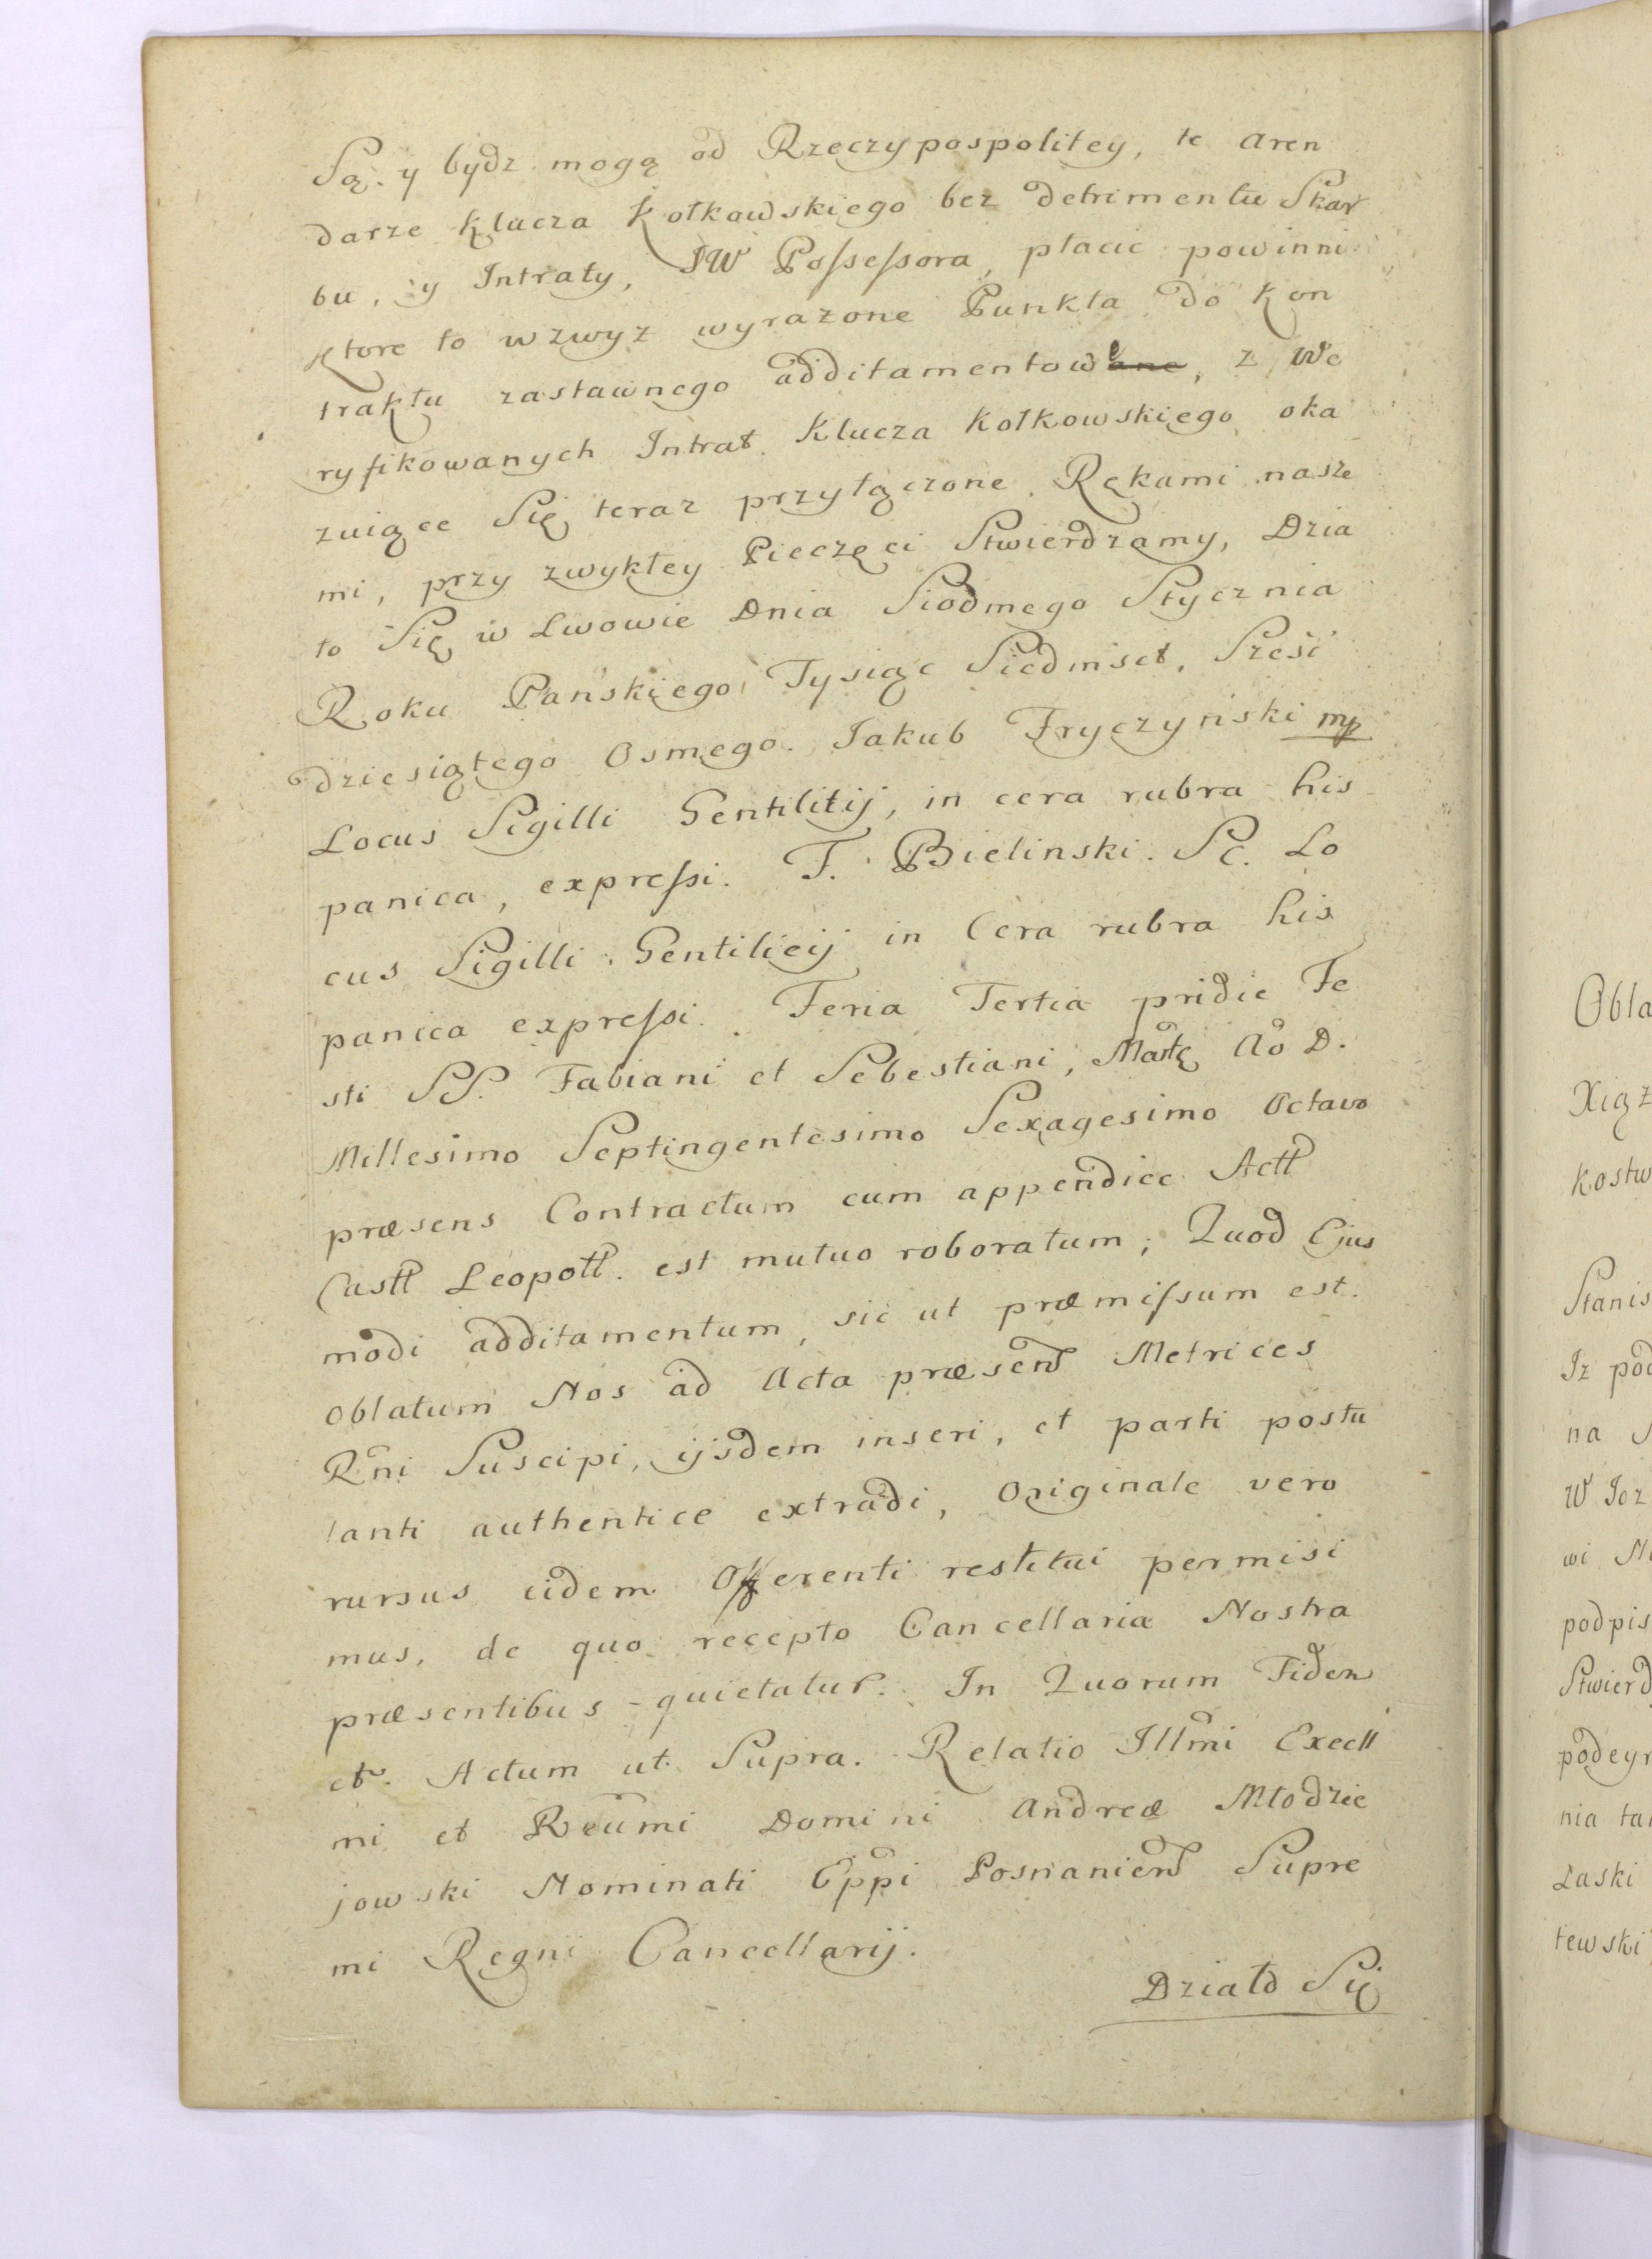 Są. y bydz mogą od Rzeczypospolitey, te Aren
darze Klucza Kołkowskiego bez detrimentu Skar
bu, y Intraty, JW Possessora, płacic powinni
Ktore to wzwyz wyrazone Punkta do Kon
traktu zastawnego additamentow ane, z We
ryfikowanych Intrat Klucza Kołkowskiego oka
zuiące Się teraz przyłączone, Rękami nasze
mi, przy zwykłey Pieczęci Stwierdzamy, Dzia
ło Się w Lwowie Dnia Siodmego Stycznia
Roku Pańskiego Tysiąc Siedmset, Sześć
dziesiątego Osmego. Jakub Fryczyński mp
Locus Sigilli Gentilitij, in cera rubra his
panica, expressi. F. Bielinski. Sc. Lo
cus Sigilli Gentilicij in Cera rubra his
panica expressi. Feria Tertia pridie Fe
sti SS. Fabiani et Sebestiani, Martę Ao D.
Millesimo Septingentesimo Sexagesimo Octavo
præsens Contractum cum appendice Actt
Castt Leopott. est mutuo roboratum; Quod Ejus
modi additamentum, sic ut præmissum est.
Oblatum Nos ad Acta præsens Metrices
Rni Suscipi, ijsdem inseri, et parti postu
lanti authentice extradi, Originale vero
rursus eidem Offerenti restitui permisi
mus, de quo recepto Cancellariæ Nostra
præsentibus quietatur. In Quorum Fidem
et. Actum ut Supra. Relatio Illmi Excell
mi et Reūmi Domini Andreæ Młodzie
jowski Nominati Eppi Posnaniens Supre
mi Regni Cancellarij.
Działo Się
Obla
Xiąz
kostw
Stanis
Iz pod
na
W Joz
wi
podpis
Stwierd
podeyr
nia tam
Laski
tewski